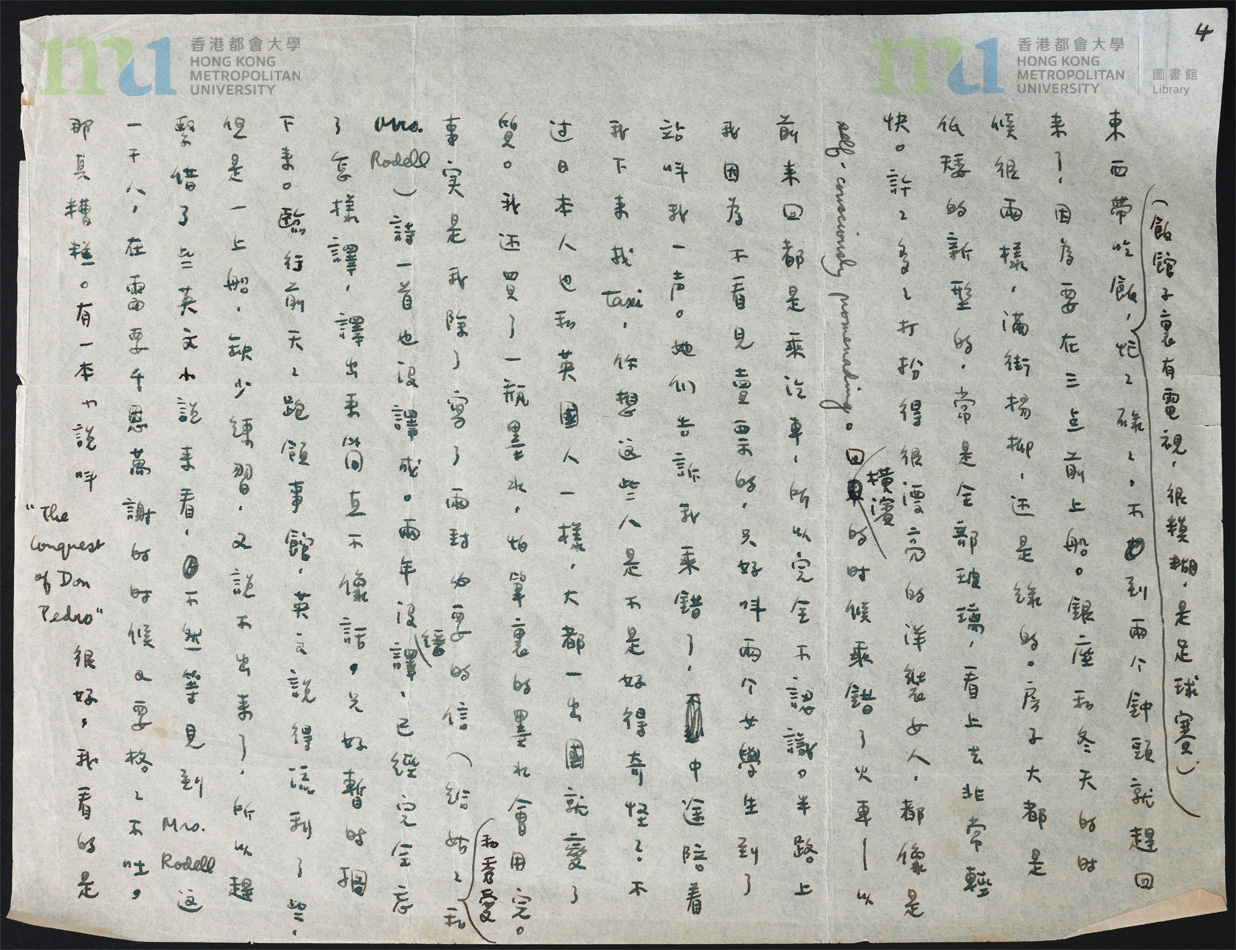 香港都會大學
HONG KONG
METROPOLITAN
UNIVERSITY
香港都會大學
HONG KONG
METROPOLITAN
UNIVERSITY
圖書館
Library
4
（飯館子裏有電視，很模糊，是足球賽）
東西帶吃飯，忙〻碌〻，不到兩个鐘頭就趕回
来了，因為要在三点前上船。銀座和冬天的时
候很兩樣，滿街楊柳，还是綠的。房子大都是
低矮的新型的，常是全部玻璃，看上去非常輕
快。許〻多〻打扮得很漂亮的洋裝女人，都像是
self-consciously promenading。回橫濱的时候乘錯了火車—以
前来回都是乘汽車，所以完全不認識。半路上
我因為不看見賣票的，只好叫兩个女學生到了
站叫我一声。她们告訴我乘錯了，中途陪着
我下来找taxi，你想这些人是不是好得奇怪？不
过日本人也和英國人一樣，大都一出國就變了
質。我还買了一瓶墨水，怕筆裏的墨水會用完。
事实是我除了寫了兩封必要的信（給姑〻和秀愛和
Mrs. Rodell）詩一首也沒譯成。兩年沒繙譯，已經完全忘
了怎樣譯，譯出来簡直不像話，只好暫时擱
下来。臨行前天〻跑領事館，英文說得流利了些，
但是一上船，缺少練習，又說不出来了，所以趕
緊借了些英文小說来看，不然等見到Mrs. Rodell这
一干人，在需要千恩萬謝的时候又要格〻不吐，
那真糟糕。有一本小說叫"The Conquest of Don Pedro"很好，我看的是